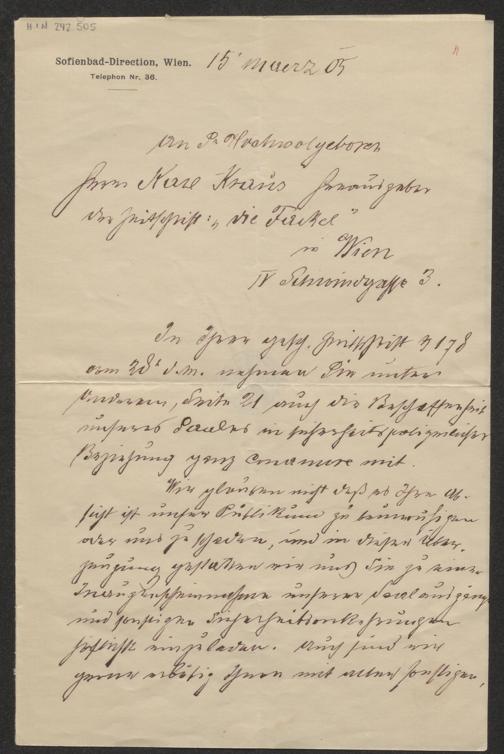 H.I.N. 242.505
Sofienbad-Direction, Wien.
Telephon Nr. 36.
15 Maerz 05
An Sr Hochwolgeboren
Herrn Karl Kraus Herausgeber
der Zeitschrift: „die Fackel"
in Wien
IV Schwindgasse 3.
In Ihrer gesch. Zeitschrift № 178
am d. M. nehmen Sie unter
Anderem, Seite 21 auch die Beschaffenheit
unseres Saales in sicherheitspolizeilicher
Beziehung ganz mit.
Wir glauben nicht daß es Ihre Ab-
sicht ist unser Publikum zu beunruhigen
oder uns zu schaden, und in dieser Über-
zeugung gestatten wir uns Sie zu einer
Inaugenscheinnahme unserer Saalausgänge
und sonstigen Sicherheitsvorkehrungen
höflichst einzuladen. Auch sind wir
gerne erbötig Ihnen mit allen sonstigen,